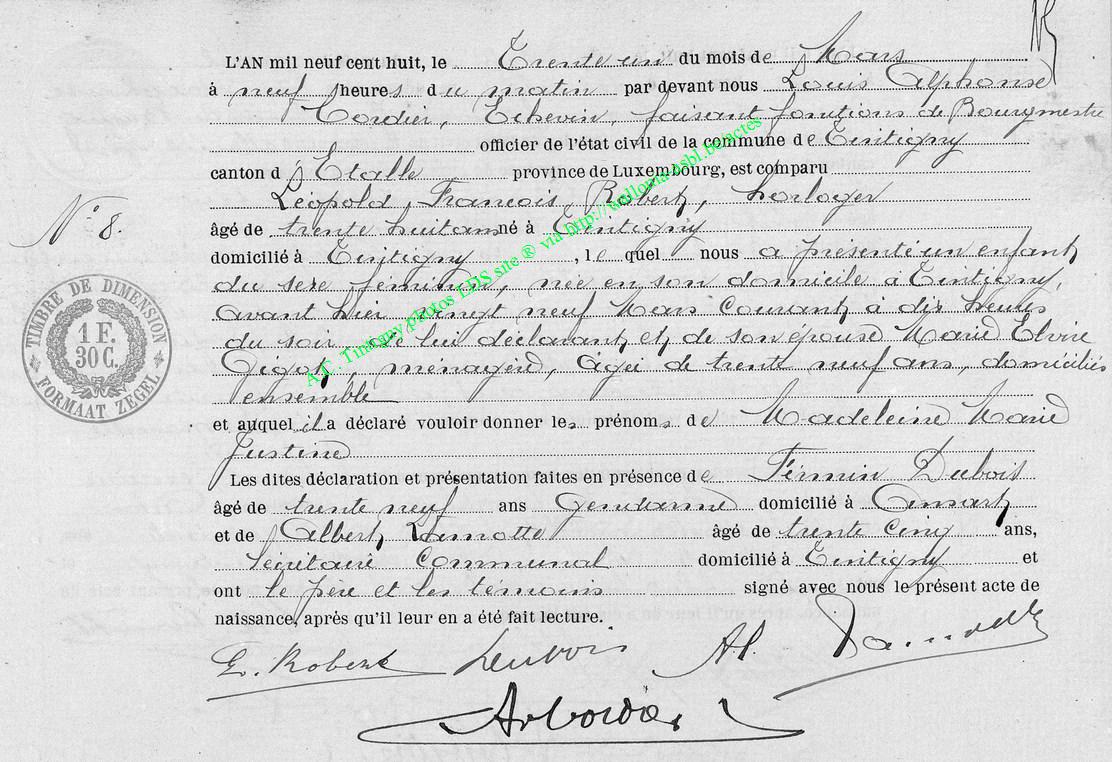 L'AN mil neuf cent huit, le Trente un du mois de Mars
à neuf heures du matin par devant nous Louis Alphonse
Cordier, Echevin, faisant fonctions de Bourgmestre
officier de l'état civil de la commune de Tintigny
canton d'Etalle province de Luxembourg, est comparu
Léopold, François, Robert, horloger
N° 8.
âgé de trente huit ans né à Tintigny
domicilié à Tintigny, le quel nous a présenté un enfant
du sexe féminin, née en son domicile à Tintigny,
avant hier vingt neuf Mars courant à dix heures
du soir, de lui déclarant et de son épouse Marie Elvire
Gigot, ménagère, âgée de trente neuf ans, domiciliés
ensemble
et auquel il a déclaré vouloir donner les prénoms de Madeleine Marie
Justine
Les dites déclaration et présentation faites en présence de Firmin Dubois
âgé de trente neuf ans gendarme domicilié à
et de Albert Lamotte âgé de trente cinq ans,
secrétaire communal domicilié à Tintigny et
ont le père et les témoins signé avec nous le présent acte de
naissance, après qu'il leur en a été fait lecture.
L. Robert Dubois Al. Lamotte
TIMBRE DE DIMENSION
1 F.
30 C.
FORMAAT ZEGEL
A.C. Tintigny photos LDS site ® via http://wallonia-asbl.be/actes